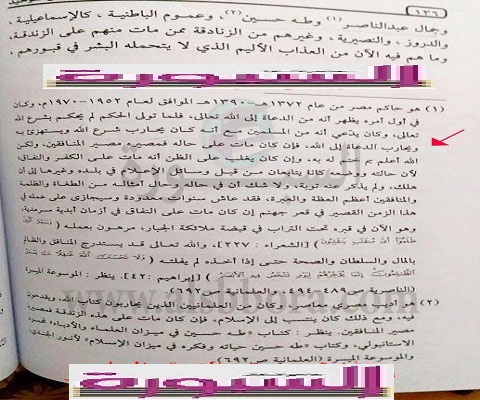 ١٣٦
وجمال عبدالناصر(١) وطه حسين(٢)، وعموم الباطنية، كالإسماعيلية،
والدروز، والنصيرية، وغيرهم من الزنادقة ممن مات منهم على الزندقة،
وما هم فيه الآن من العذاب الأليم الذي لا يتحمله البشر في قبورهم،
السبورة
(١) هو حاكم مصر من عام ١٣٧٢هـ-١٣٩٠هـ الموافق لعام ١٩٥٢-١٩٧٠م، وكان
في أول أمره يظهر أنه من الدعاة إلى الله تعالى، فلما تولى الحكم لم يحكم بشرع الله
تعالى، وكان يدّعي أنه من المسلمين مع أنه كان يحارب شرع الله ويستهزئ به
ويحارب الدعاة إلى الله، فإن كان مات على حاله فمصيره مصير المنافقين، ولكن
الله أعلم بم ختم له به، وإن كان يغلب على الظن أنه مات على الكفر والنفاق؛
لأن حالته وأقواله كانا يتابعان من قبل وسائل الإعلام في بلده وغيرها إلى أن
هلك، ولم يذكر عنه توبة، ولا شك أن في حاله وحال أمثاله من الطغاة والظلمة
والمنافقين أعظم العظة والعبرة، فقد عاش سنوات معدودة وسيجازى على عمله في
هذا الزمن القصير في قعر جهنم إن كان مات على النفاق في أزمان أبدية سرمدية،
وهو الآن في قبره تحت التراب في قبضة ملائكة الجبار، مرهون بعمله
[الشعراء: ٢٢٧]، والله تعالى قد يستدرج المنافق والظالم
بالمال والسلطان والصحة حتى إذا أخذه لم يفلته
[إبراهيم: ٤٢]. ينظر: الموسوعة الميسرة
(الناصرية ص٤٨٩-٤٩٤، والعلمانية ص٦٩٢).
(٢) أديب مصري معاصر، وكان من العلمانيين الذين يحاربون كتاب الله، ويقدحون
فيه، ومع ذلك كان ينتسب إلى الإسلام، فإن كان مات على هذه الزندقة فمصيره
مصير المنافقين. ينظر: كتاب «طه حسين في ميزان العلماء والأدباء» لمحمود
الاستانبولي، وكتاب «طه حسين حياته وفكره في ميزان الإسلام» لأنور الجندي،
والموسوعة الميسرة (العلمانية ص٦٩٢).
السبورة